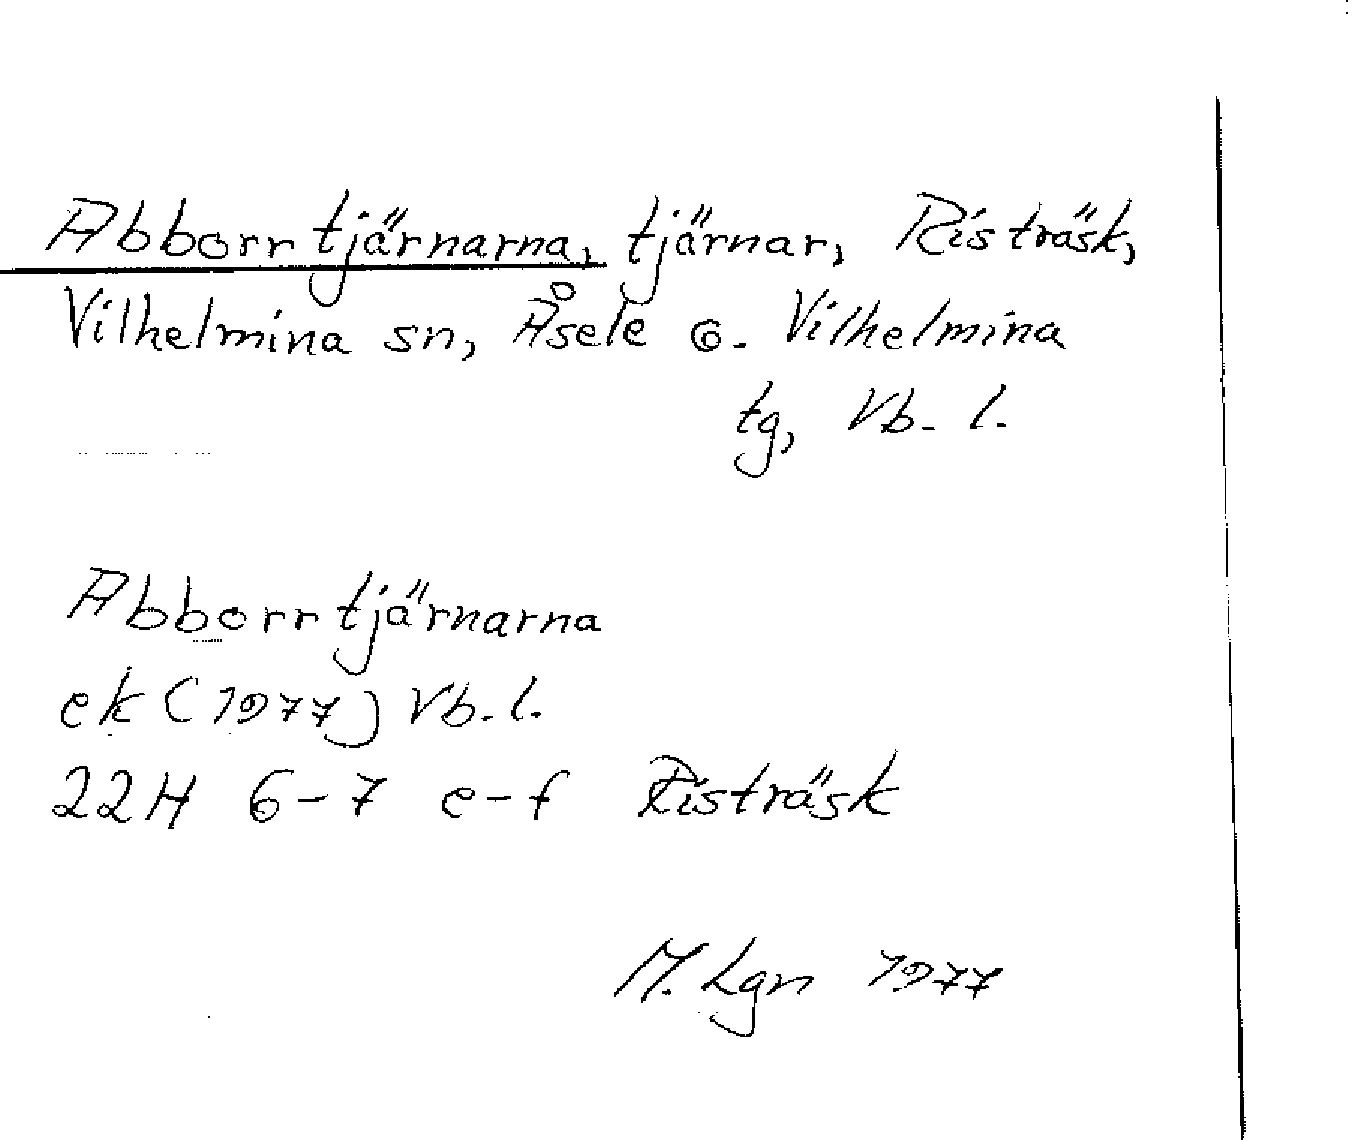 Abborrtjärnarna, tjärnar, Risträsk,
Vilhelmina sn, Åsele o. Vilhelmina
tg, Vb. l.
Abborrtjärnarna
ek (1977) Vb. l.
22H 6-7 e-f Risträsk
M. Lgn 1977